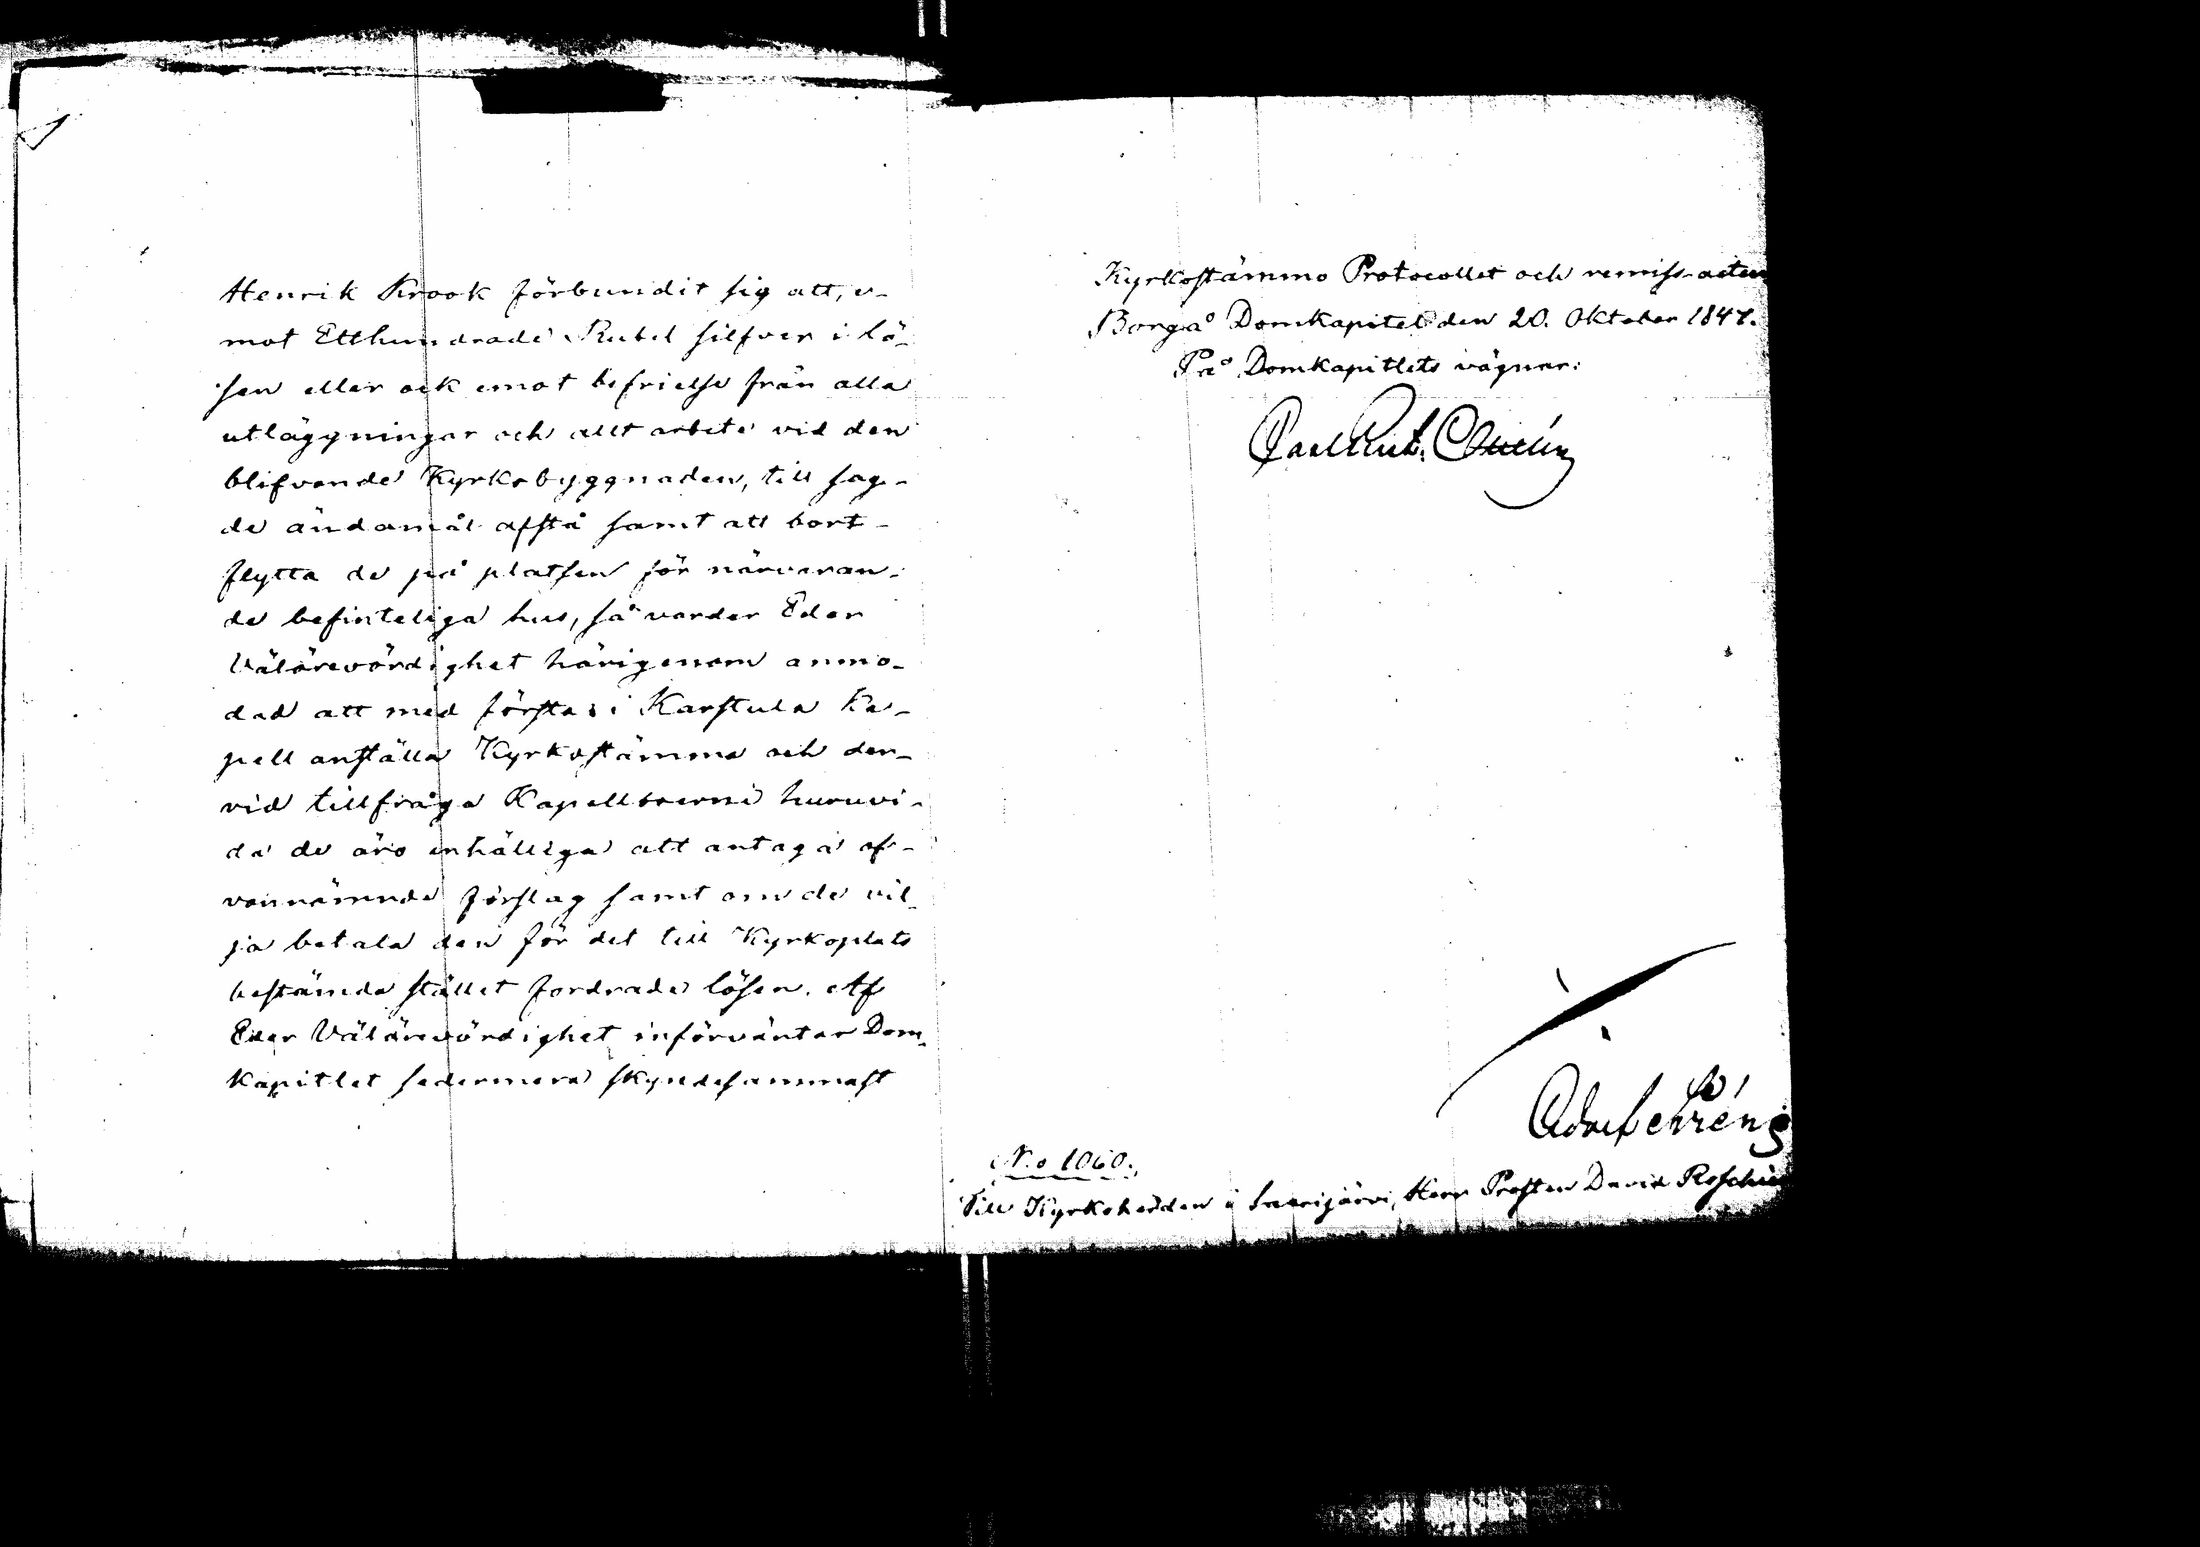 Henrik Krook förbundit sig att, e-
mot Etthundrade Rubel silfver i lö-
sen eller ock emot befrielse från alla
utläggningar och allt arbete vid den
blifvande Kyrkobyggnaden, till sag-
de ändamål afstå samt att bort-
flytta de på platsen för närvaran-
de befinteliga hus, så varder Eder
Välärevördighet härigenom anmo-
dad att med första i Karstula Ka-
pell anställa Kyrkostämma och der-
vid tillfråga Kapellboerne huruvi-
da de äro enhälliga att antaga of-
vannämnde förslag samt om de vil-
ja betala den för det till Kyrkoplats
bestämda stället fordrade lösen. Af
Eder Välärevördighet införväntar Dom-
Kapitlet sedermera skyndesammast
Kyrkostämmo Protocollet och remiss-acten
Borgå Domkapitel den 20. Oktober 1847.
På Domkapitlets vägnar:
No 1060.
Till Kyrkoherden i Saarijärvi, Herr Prosten David Roschier